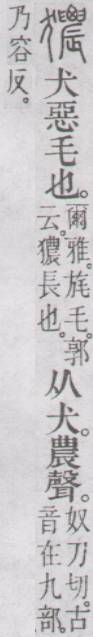 㺜 犬惡毛也。爾雅。旄毛。郭云。㺜長也。从犬。農聲。奴刀切。古音在九部。
乃容反。